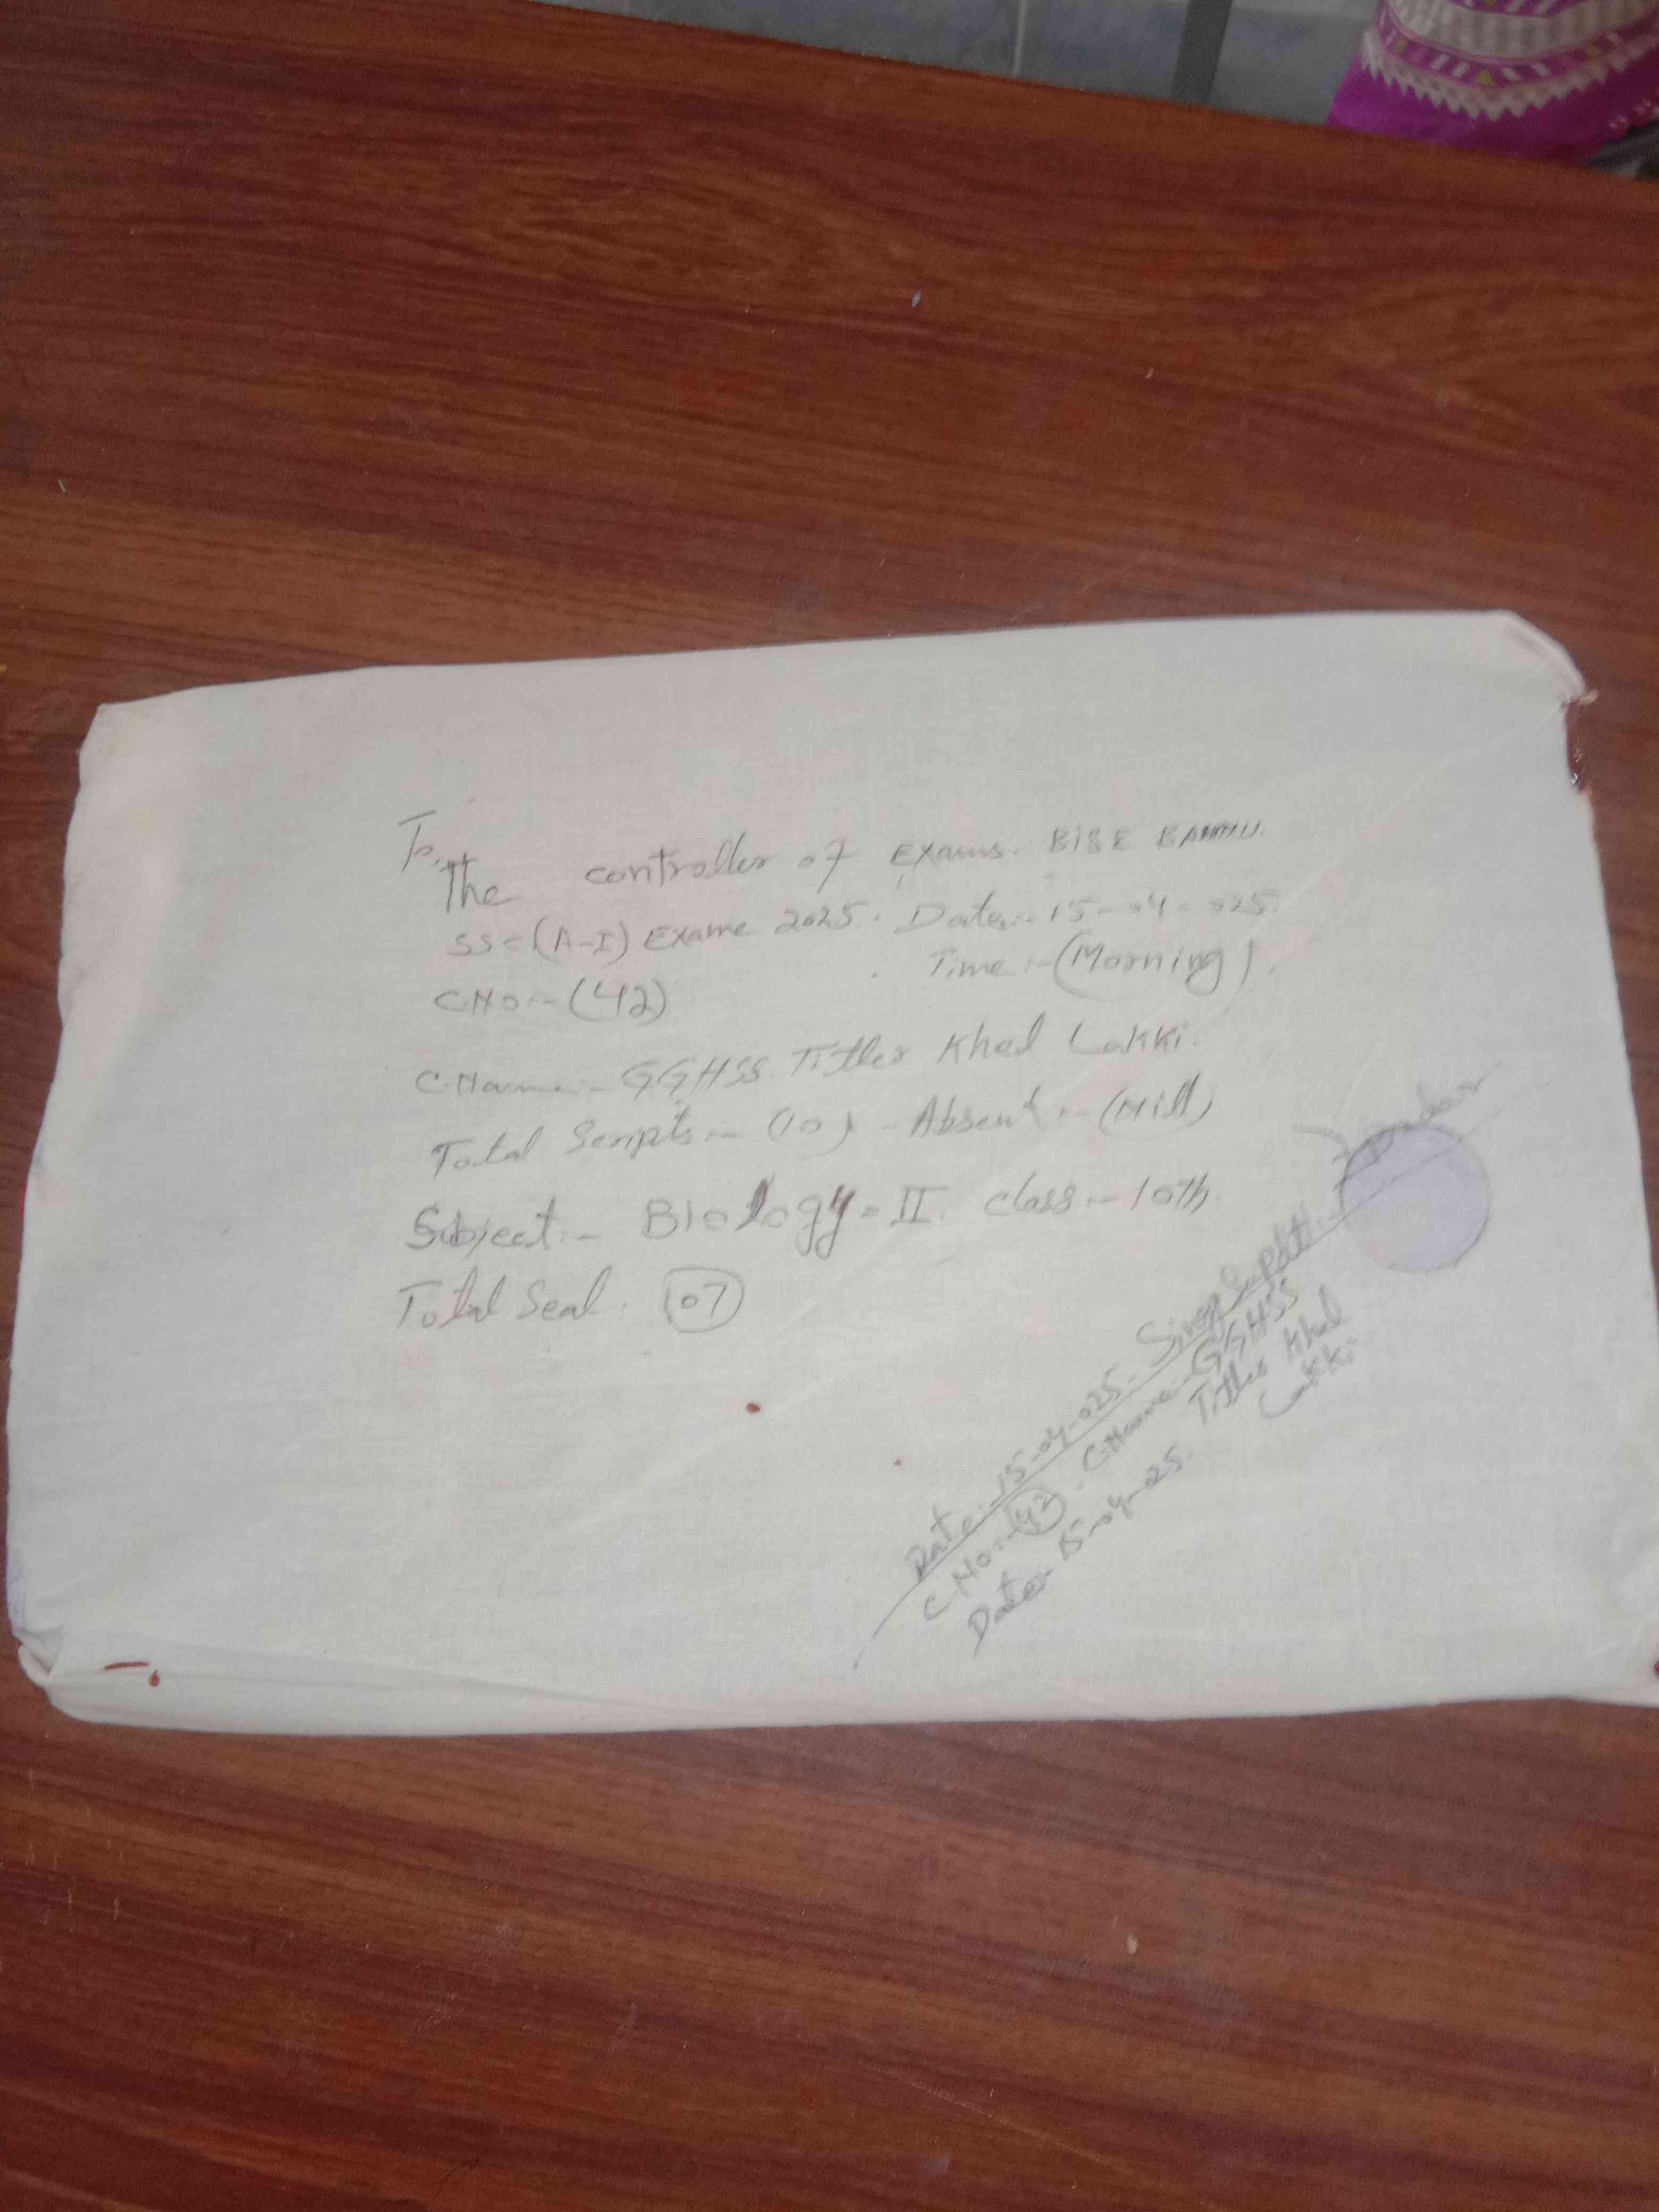 To,
The controller of Exams. BISE BANNU.
SSC (A-I) Exame 2025. Date:- 15-04-025.
C.No:- (42) Time:- (Morning).
C.Name:- GGHSS. Titter Khel Lakki.
Total Scripts:- (10) - Absent:- (Nill)
Subject:- Biology-II. class:- 10th.
Total Seal. 07
Date:- 15-04-025. Sing Supdtt:-
C.No:- 42. C.Name- GGHSS
Titter Khel
Lakki
Date:- 15-04-25.